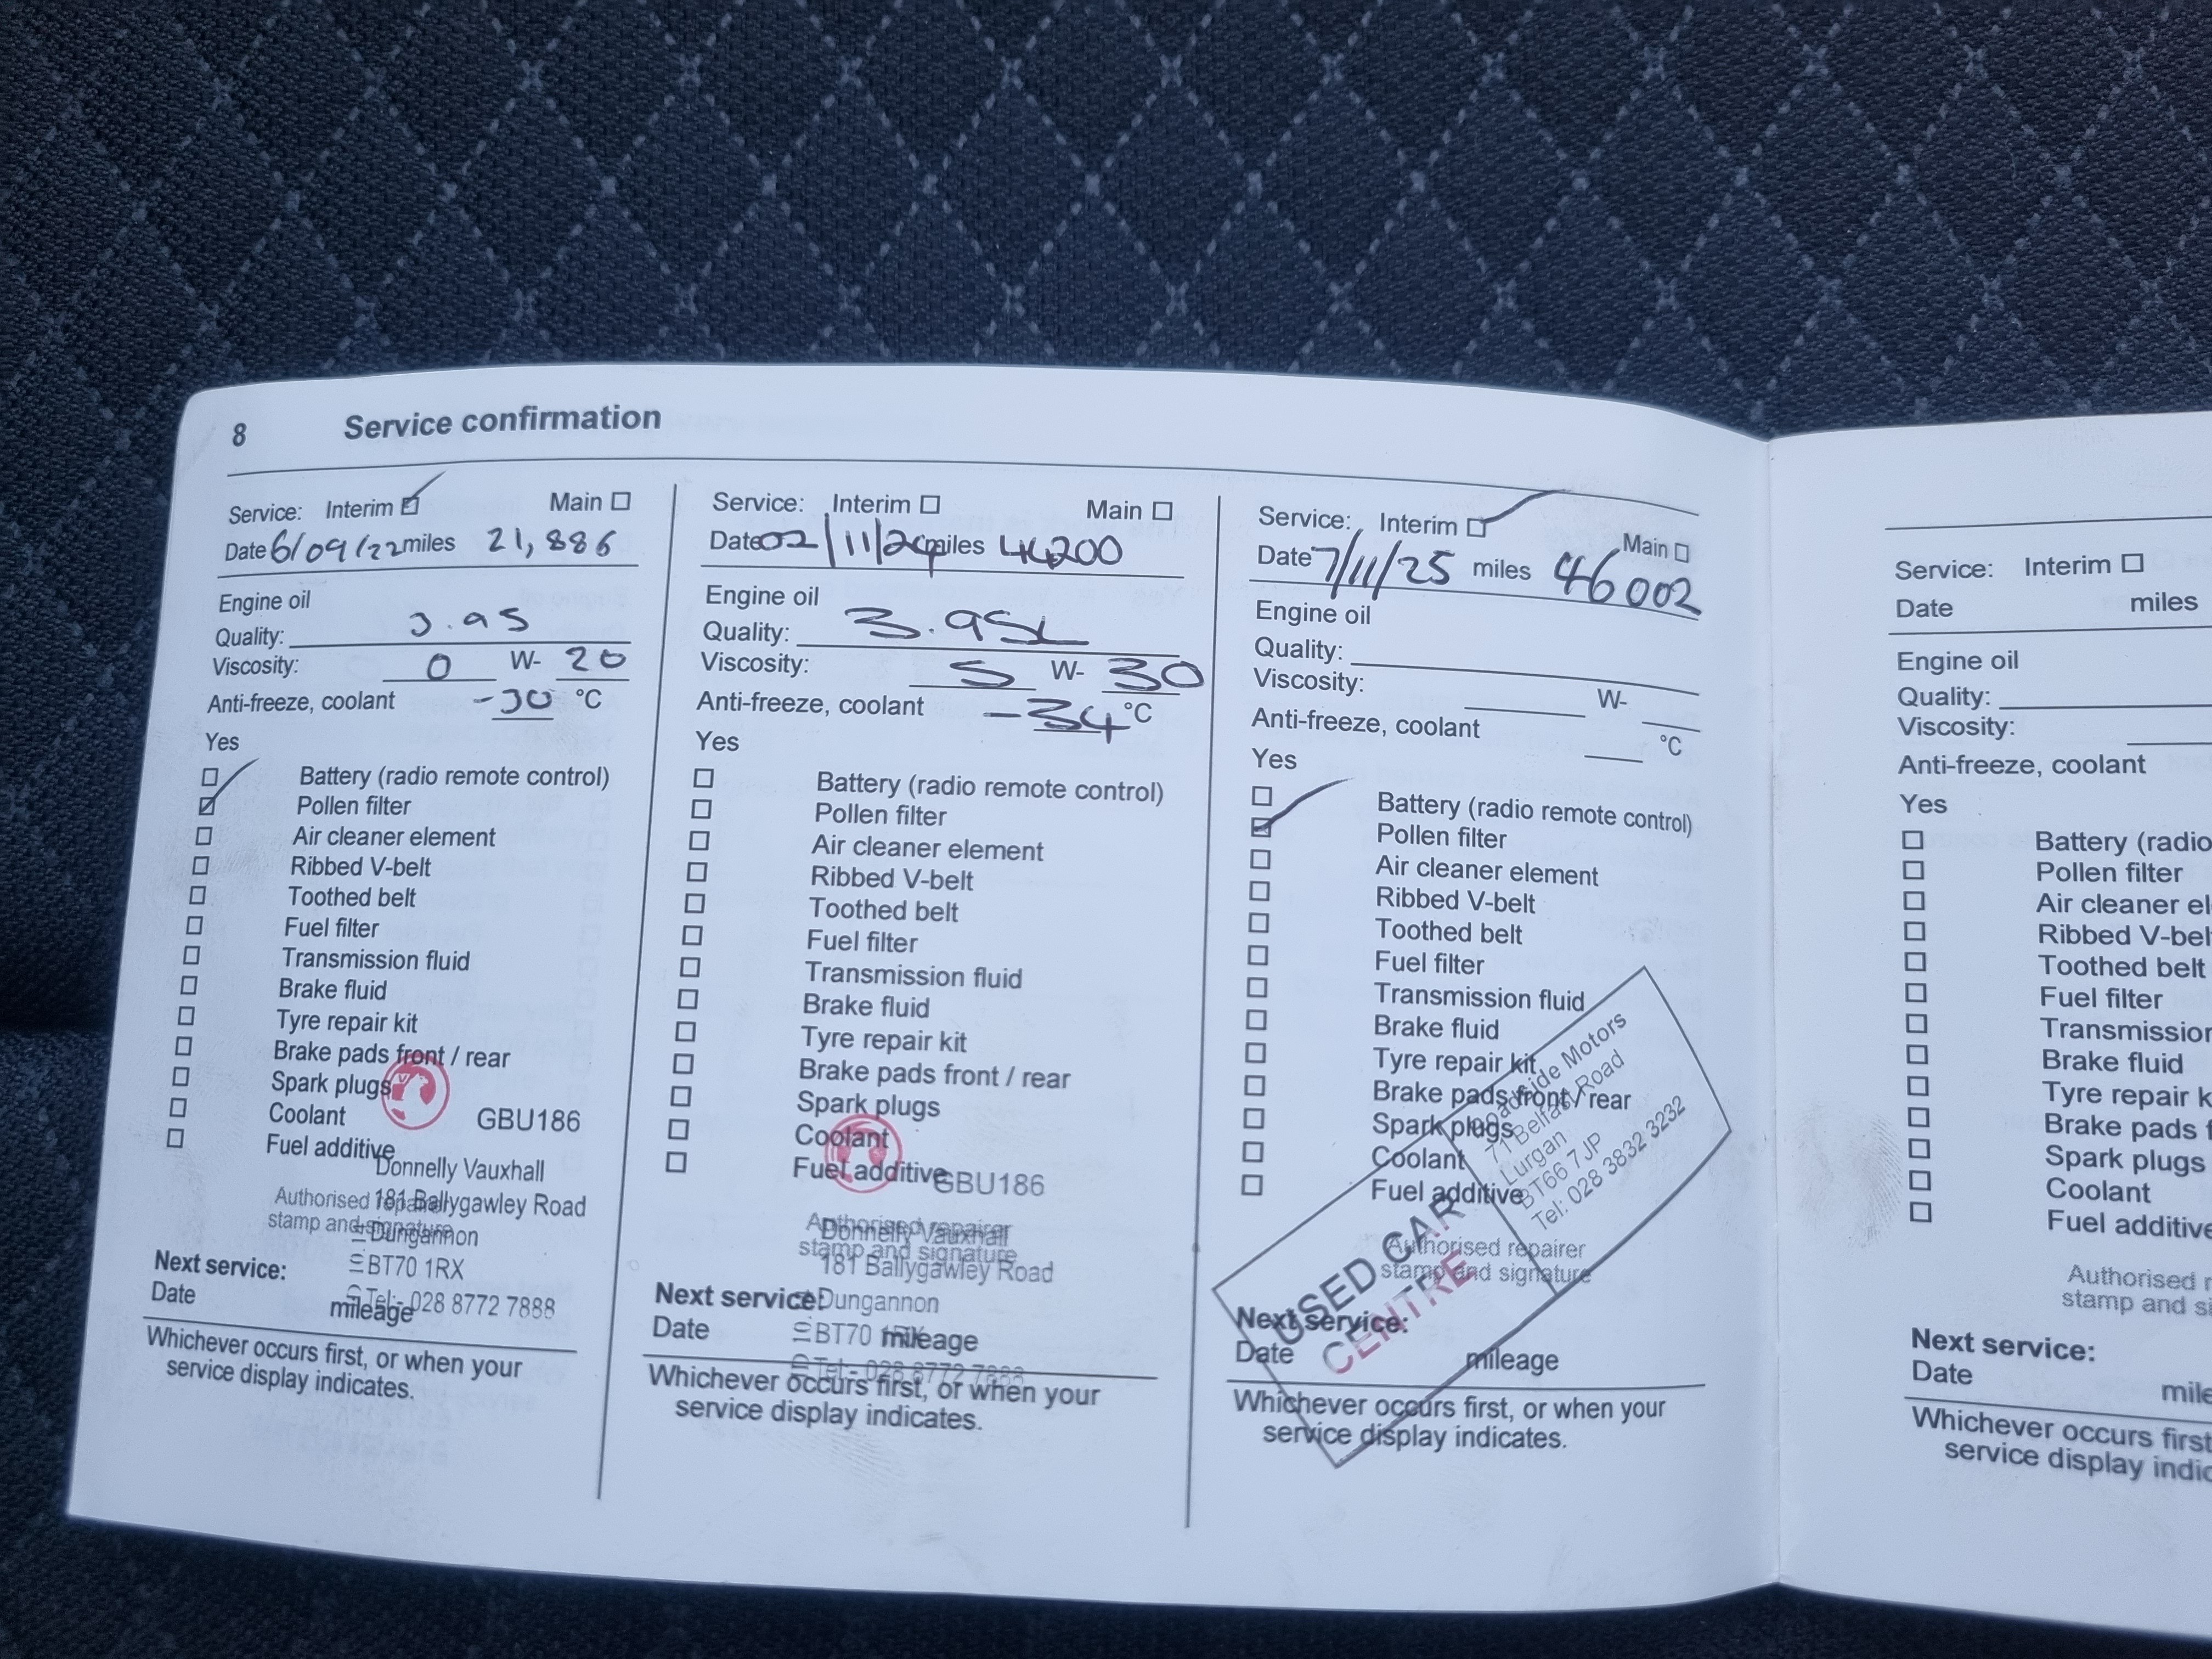 8 Service confirmation
Service: Interim Main
Date 6/09/22 miles 21,886
Engine oil
Quality: 3.95
Viscosity: 0 W- 20
Anti-freeze, coolant -30 °C
Yes
Battery (radio remote control)
Pollen filter
Air cleaner element
Ribbed V-belt
Toothed belt
Fuel filter
Transmission fluid
Brake fluid
Tyre repair kit
Brake pads front / rear
Spark plugs
Coolant
GBU186
Fuel additive
Donnelly Vauxhall
Authorised repairer
181 Ballygawley Road
stamp and signature
Dungannon
BT70 1RX
Next service:
Tel:- 028 8772 7888
Date mileage
Whichever occurs first, or when your
service display indicates.
Service: Interim Main
Date 02/11/24 miles 44200
Engine oil
Quality: 3.95L
Viscosity: 5 W- 30
Anti-freeze, coolant -34 °C
Yes
Battery (radio remote control)
Pollen filter
Air cleaner element
Ribbed V-belt
Toothed belt
Fuel filter
Transmission fluid
Brake fluid
Tyre repair kit
Brake pads front / rear
Spark plugs
Coolant
Fuel additive
GBU186
Authorised repairer
Donnelly Vauxhall
stamp and signature
181 Ballygawley Road
Next service:
Dungannon
BT70 1RX
Date mileage
Tel:- 028 8772 7888
Whichever occurs first, or when your
service display indicates.
Service: Interim Main
Date 7/11/25 miles 46002
Engine oil
Quality:
Viscosity: W-
Anti-freeze, coolant °C
Yes
Battery (radio remote control)
Pollen filter
Air cleaner element
Ribbed V-belt
Toothed belt
Fuel filter
Transmission fluid
Brake fluid
Tyre repair kit
Brake pads front / rear
Spark plugs
Coolant
Fuel additive
Roadside Motors
71 Belfast Road
Lurgan
BT66 7JP
Tel: 028 3832 3232
USED CAR
CENTRE
Authorised repairer
stamp and signature
Next service:
Date mileage
Whichever occurs first, or when your
service display indicates.
Service: Interim
Date miles
Engine oil
Quality:
Viscosity:
Anti-freeze, coolant
Yes
Battery (radio
Pollen filter
Air cleaner el
Ribbed V-bel
Toothed belt
Fuel filter
Transmission
Brake fluid
Tyre repair k
Brake pads f
Spark plugs
Coolant
Fuel additive
Authorised r
stamp and si
Next service:
Date mile
Whichever occurs first
service display indic